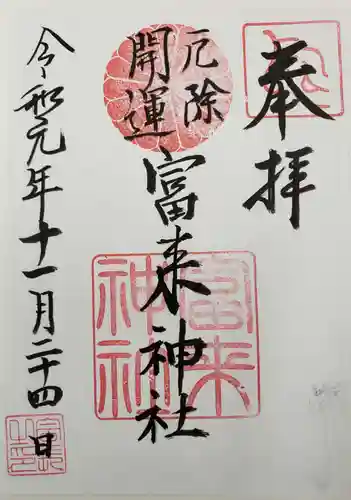 奉拝
厄除
開運
富来神社
令和元年十一月二十四日
富来
神社